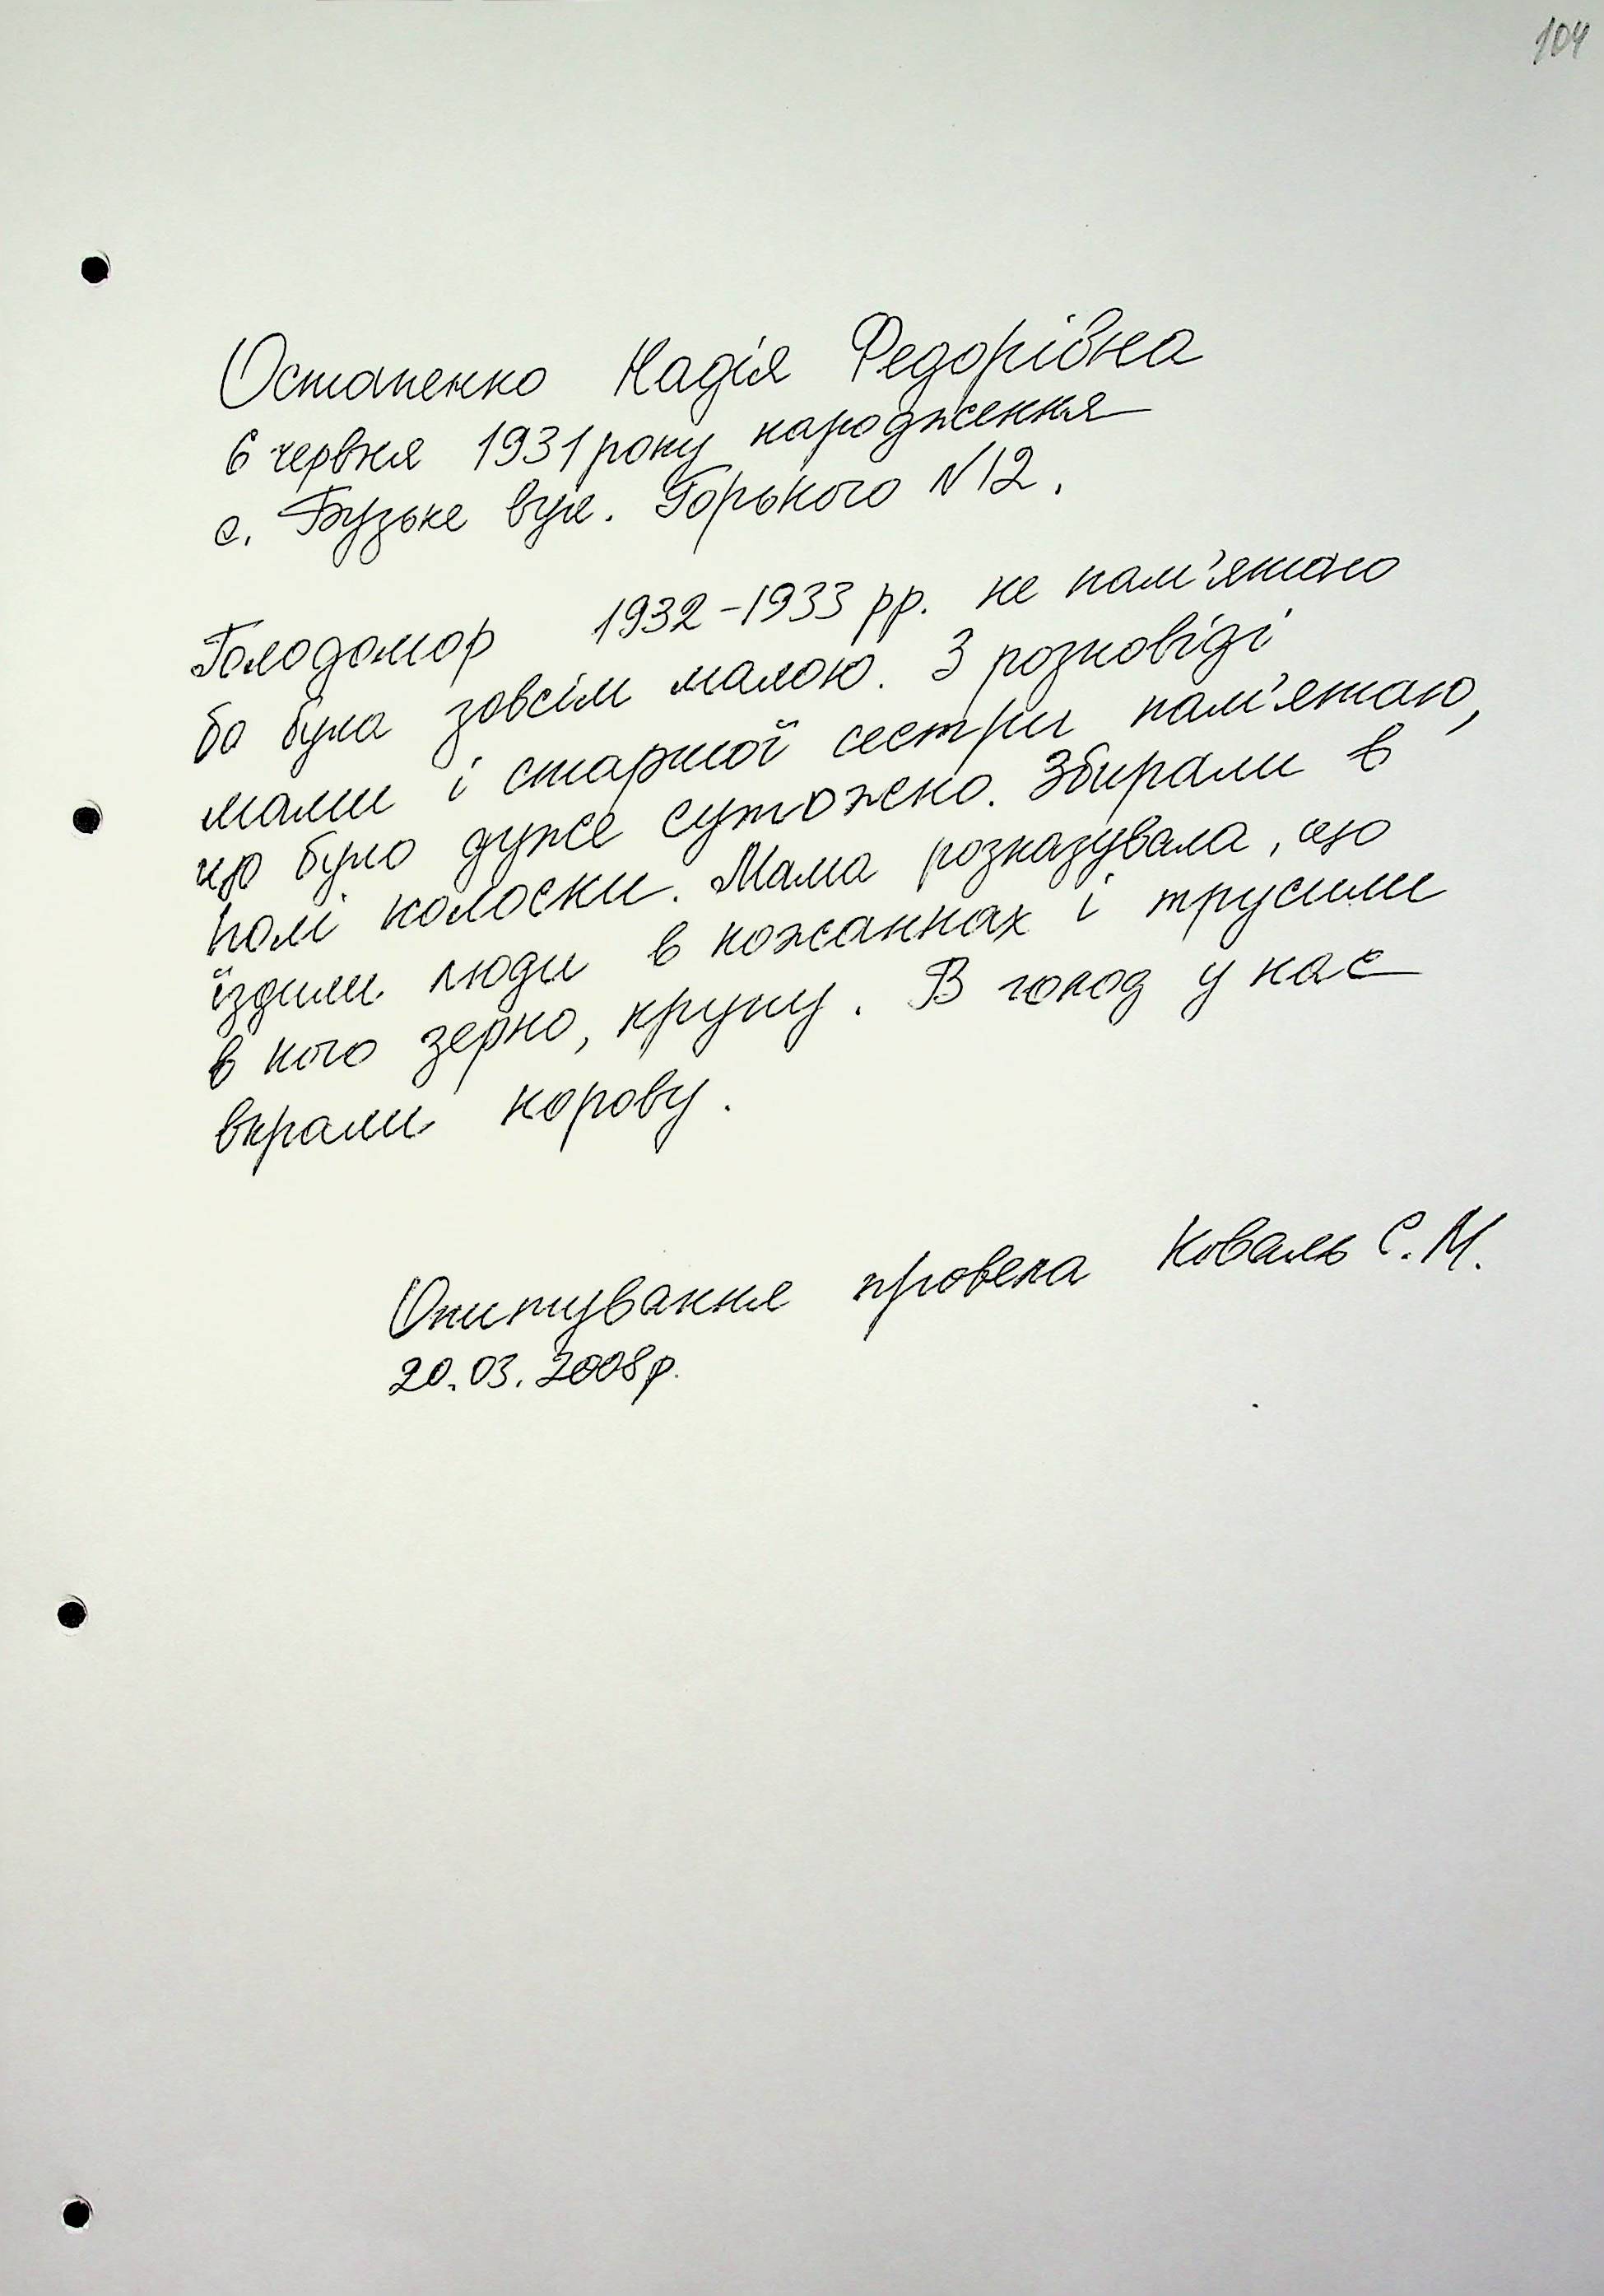 104
Остапенко Надія Федорівна
6 червня 1931 року народження
с. Бузьке вул. Горького N12.
Голодомор 1932-1933 рр. не пам'ятаю
бо була зовсім малою. З розповіді
мами і старшої сестри пам'ятаю,
що було дуже сутожно. Збирали в
полі колоски. Мама розказувала, що
їздили люди в кожанках і трусили
в кого зерно, крупу. В голод у нас
вкрали корову.
Опитування провела Коваль С.М.
20.03.2008р.